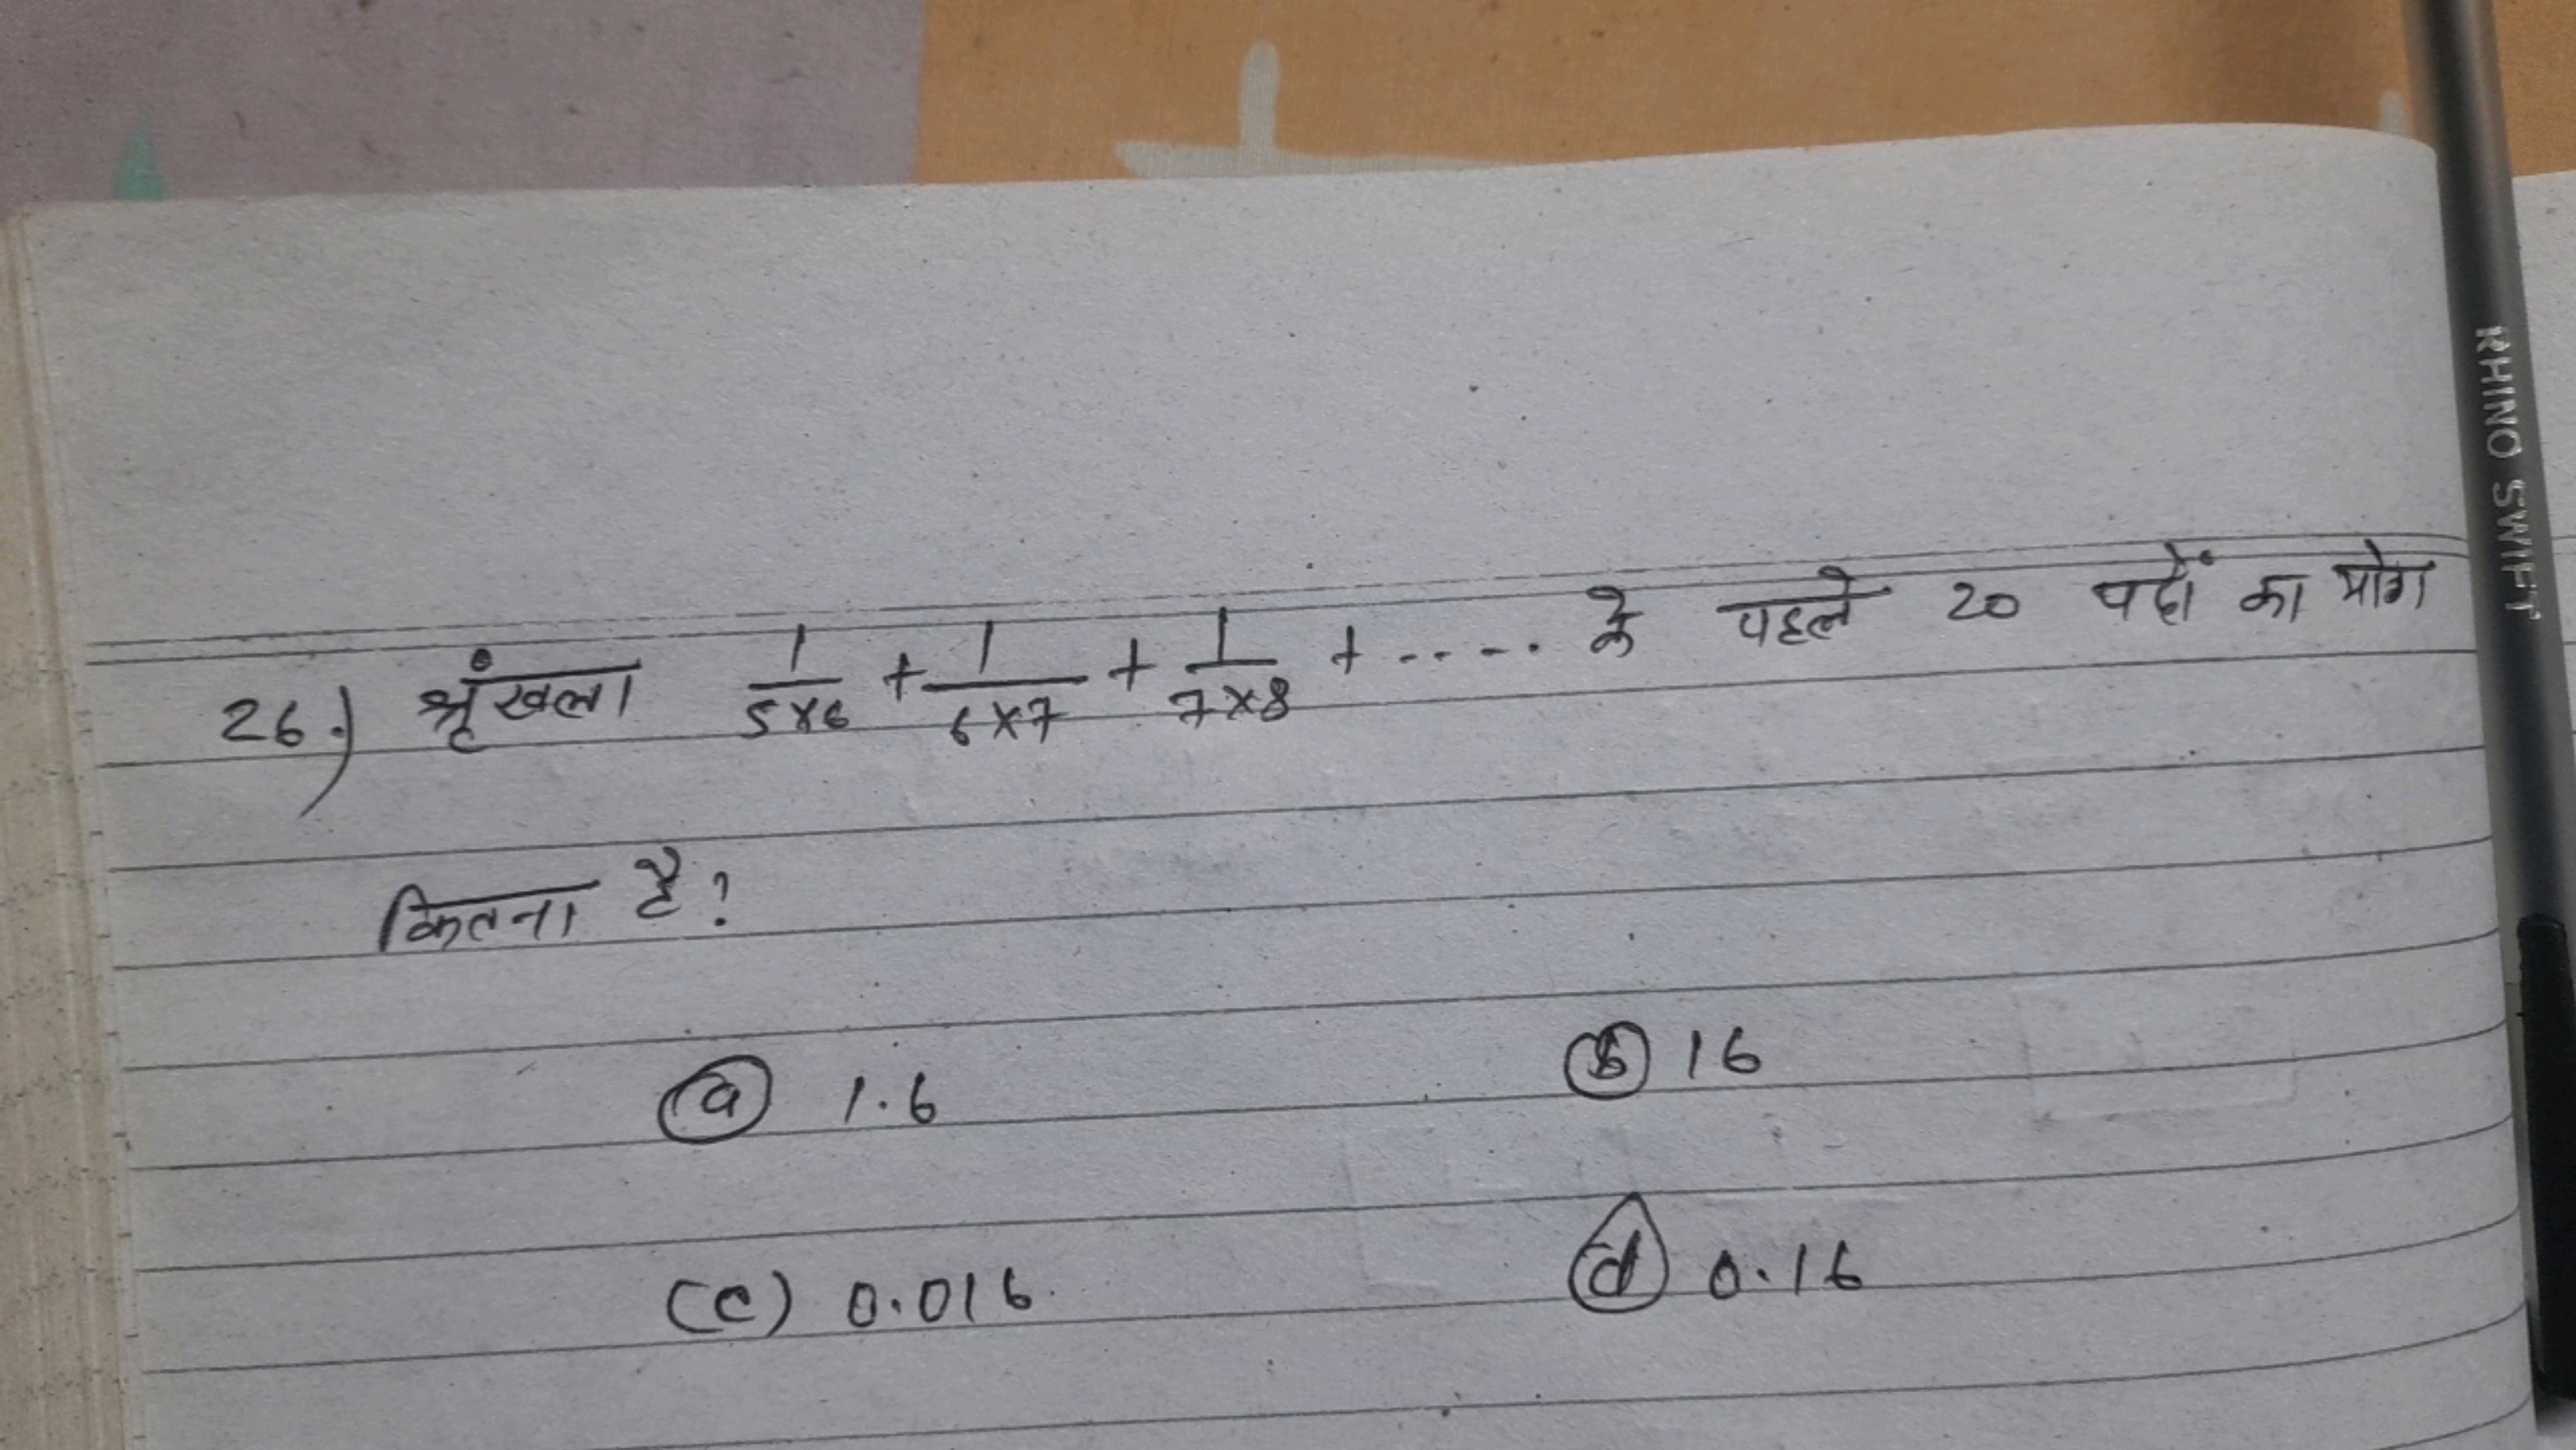 26.) श्रृंखला 1/5×6 + 1/6×7 + 1/7×8 + ..... के पहले 20 पदों का योग
कितना है?
(a) 1.6 (b) 16
(c) 0.016 (d) 0.16
RHINO SWIFT